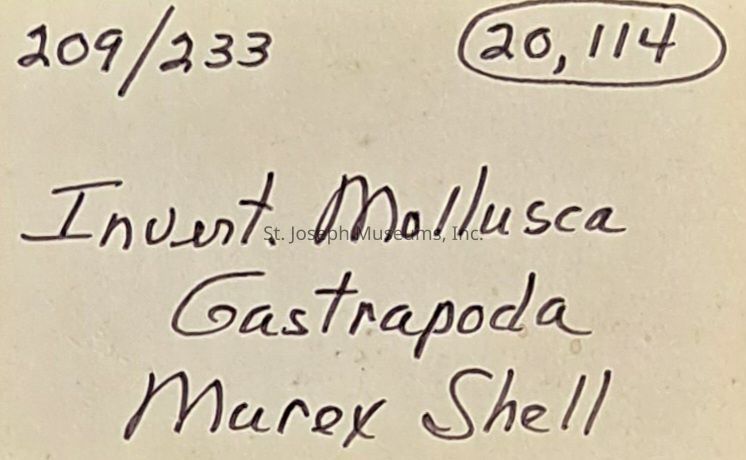 209/233 20,114
Invert. Mollusca
St. Joseph Museums, Inc.
Gastrapoda
Murex Shell